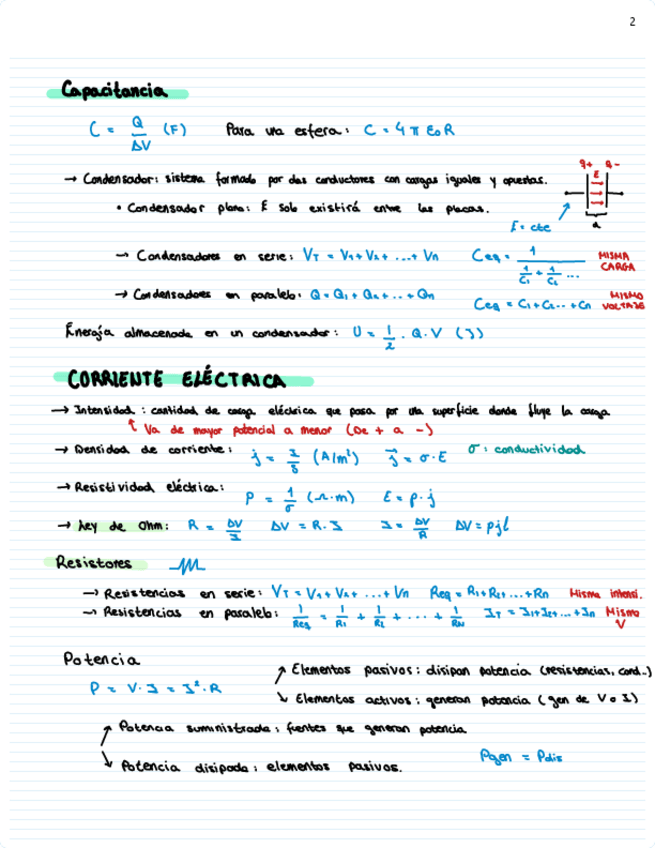 2
Capacitancia
C = Q/ΔV (F) Para una esfera: C = 4 π ε0 R
Q+ Q-
E
d
→ Condensador: sistema formado por dos conductores con cargas iguales y opuestas.
• Condensador plano: E solo existirá entre las placas.
E = cte
→ Condensadores en serie: VT = V1 + V2 + ... + Vn Ceq = 1/(1/C1 + 1/C2 ...) MISMA CARGA
→ Condensadores en paralelo: Q = Q1 + Q2 + .. + Qn Ceq = C1 + C2.. + Cn MISMO VOLTAJE
Energía almacenada en un condensador: U = 1/2 . Q . V (J)
CORRIENTE ELÉCTRICA
→ Intensidad : cantidad de carga eléctrica que pasa por una superficie donde fluye la carga
↑ Va de mayor potencial a menor (De + a -)
→ Densidad de corriente: j = I/S (A/m²) j = σ . E σ : conductividad
→ Resistividad eléctrica: ρ = 1/σ (Ω.m) E = ρ . j
→ Ley de Ohm: R = ΔV/I ΔV = R . I I = ΔV/R ΔV = ρjl
Resistores
→ Resistencias en serie: VT = V1 + V2 + ... + Vn Req = R1 + R2 + ... + Rn Misma intensi.
→ Resistencias en paralelo: 1/Req = 1/R1 + 1/R2 + ... + 1/RN IT = I1 + I2 + ... + In Mismo V
Potencia
P = V . I = I² . R
↗ Elementos pasivos: disipan potencia (resistencias, cond..)
↘ Elementos activos: generan potencia (gen de V o I)
↗ Potencia suministrada: fuentes que generan potencia
↘ Potencia disipada: elementos pasivos.
Pgen = Pdis